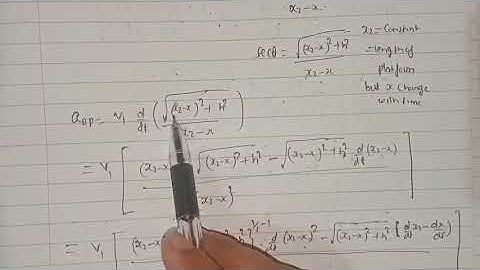 x₂-x
secθ = √((x₂-x)²+h²) / (x₂-x)
x₂ = Constant
= length of
platform
but x change
with time
a_op = v₁ d/dt ( √((x₂-x)²+h²) / (x₂-x) )
= v₁ [ (x₂-x) √((x₂-x)²+h²) - √((x₂-x)²+h²) d/dt (x₂-x)
x₂-x)²
= v₁ [ (x₂-x h²)^(1/2-1) d/dt (x₂-x)² - √((x₂-x)²+h²) { d/dt x₂ - dx/dt }